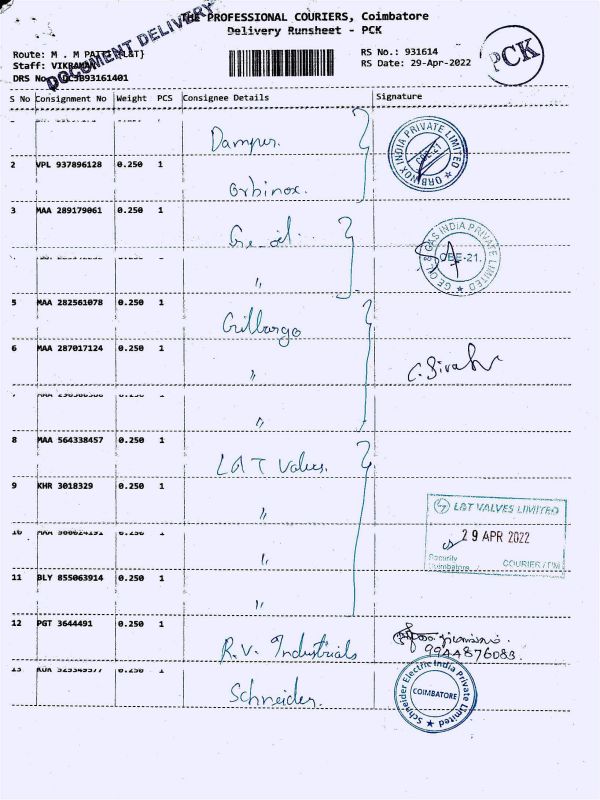 THE PROFESSIONAL COURIERS, Coimbatore
Delivery Runsheet - PCK
DOCUMENT DELIVERY
PCK
Route: M . M PATTI {L&T}
RS No.: 931614
Staff: VIKRAMAN
RS Date: 29-Apr-2022
DRS No.
S No Consignment No Weight PCS Consignee Details Signature
Dampur.
ORBINOX INDIA PRIVATE LIMITED
CBE-21
2 VPL 937896128 0.250 1 Orbinox.
3 MAA 289179061 0.250 1 Ge-oil.
GE OIL & GAS INDIA PRIVATE LIMITED
CBE-21.
"
5 MAA 282561078 0.250 1 Gulbargo
6 MAA 287017124 0.250 1 "
"
8 MAA 564338457 0.250 1 L&T Valves.
9 KHR 3018329 0.250 1 "
L&T VALVES LIMITED
29 APR 2022
Security
Coimbatore.
10 0.250 1 "
11 BLY 855063914 0.250 1 "
12 PGT 3644491 0.250 1 R.V. Industrials
9944876083.
13 0.250 1 Schneider.
Schneider Electric India Private Limited
COIMBATORE